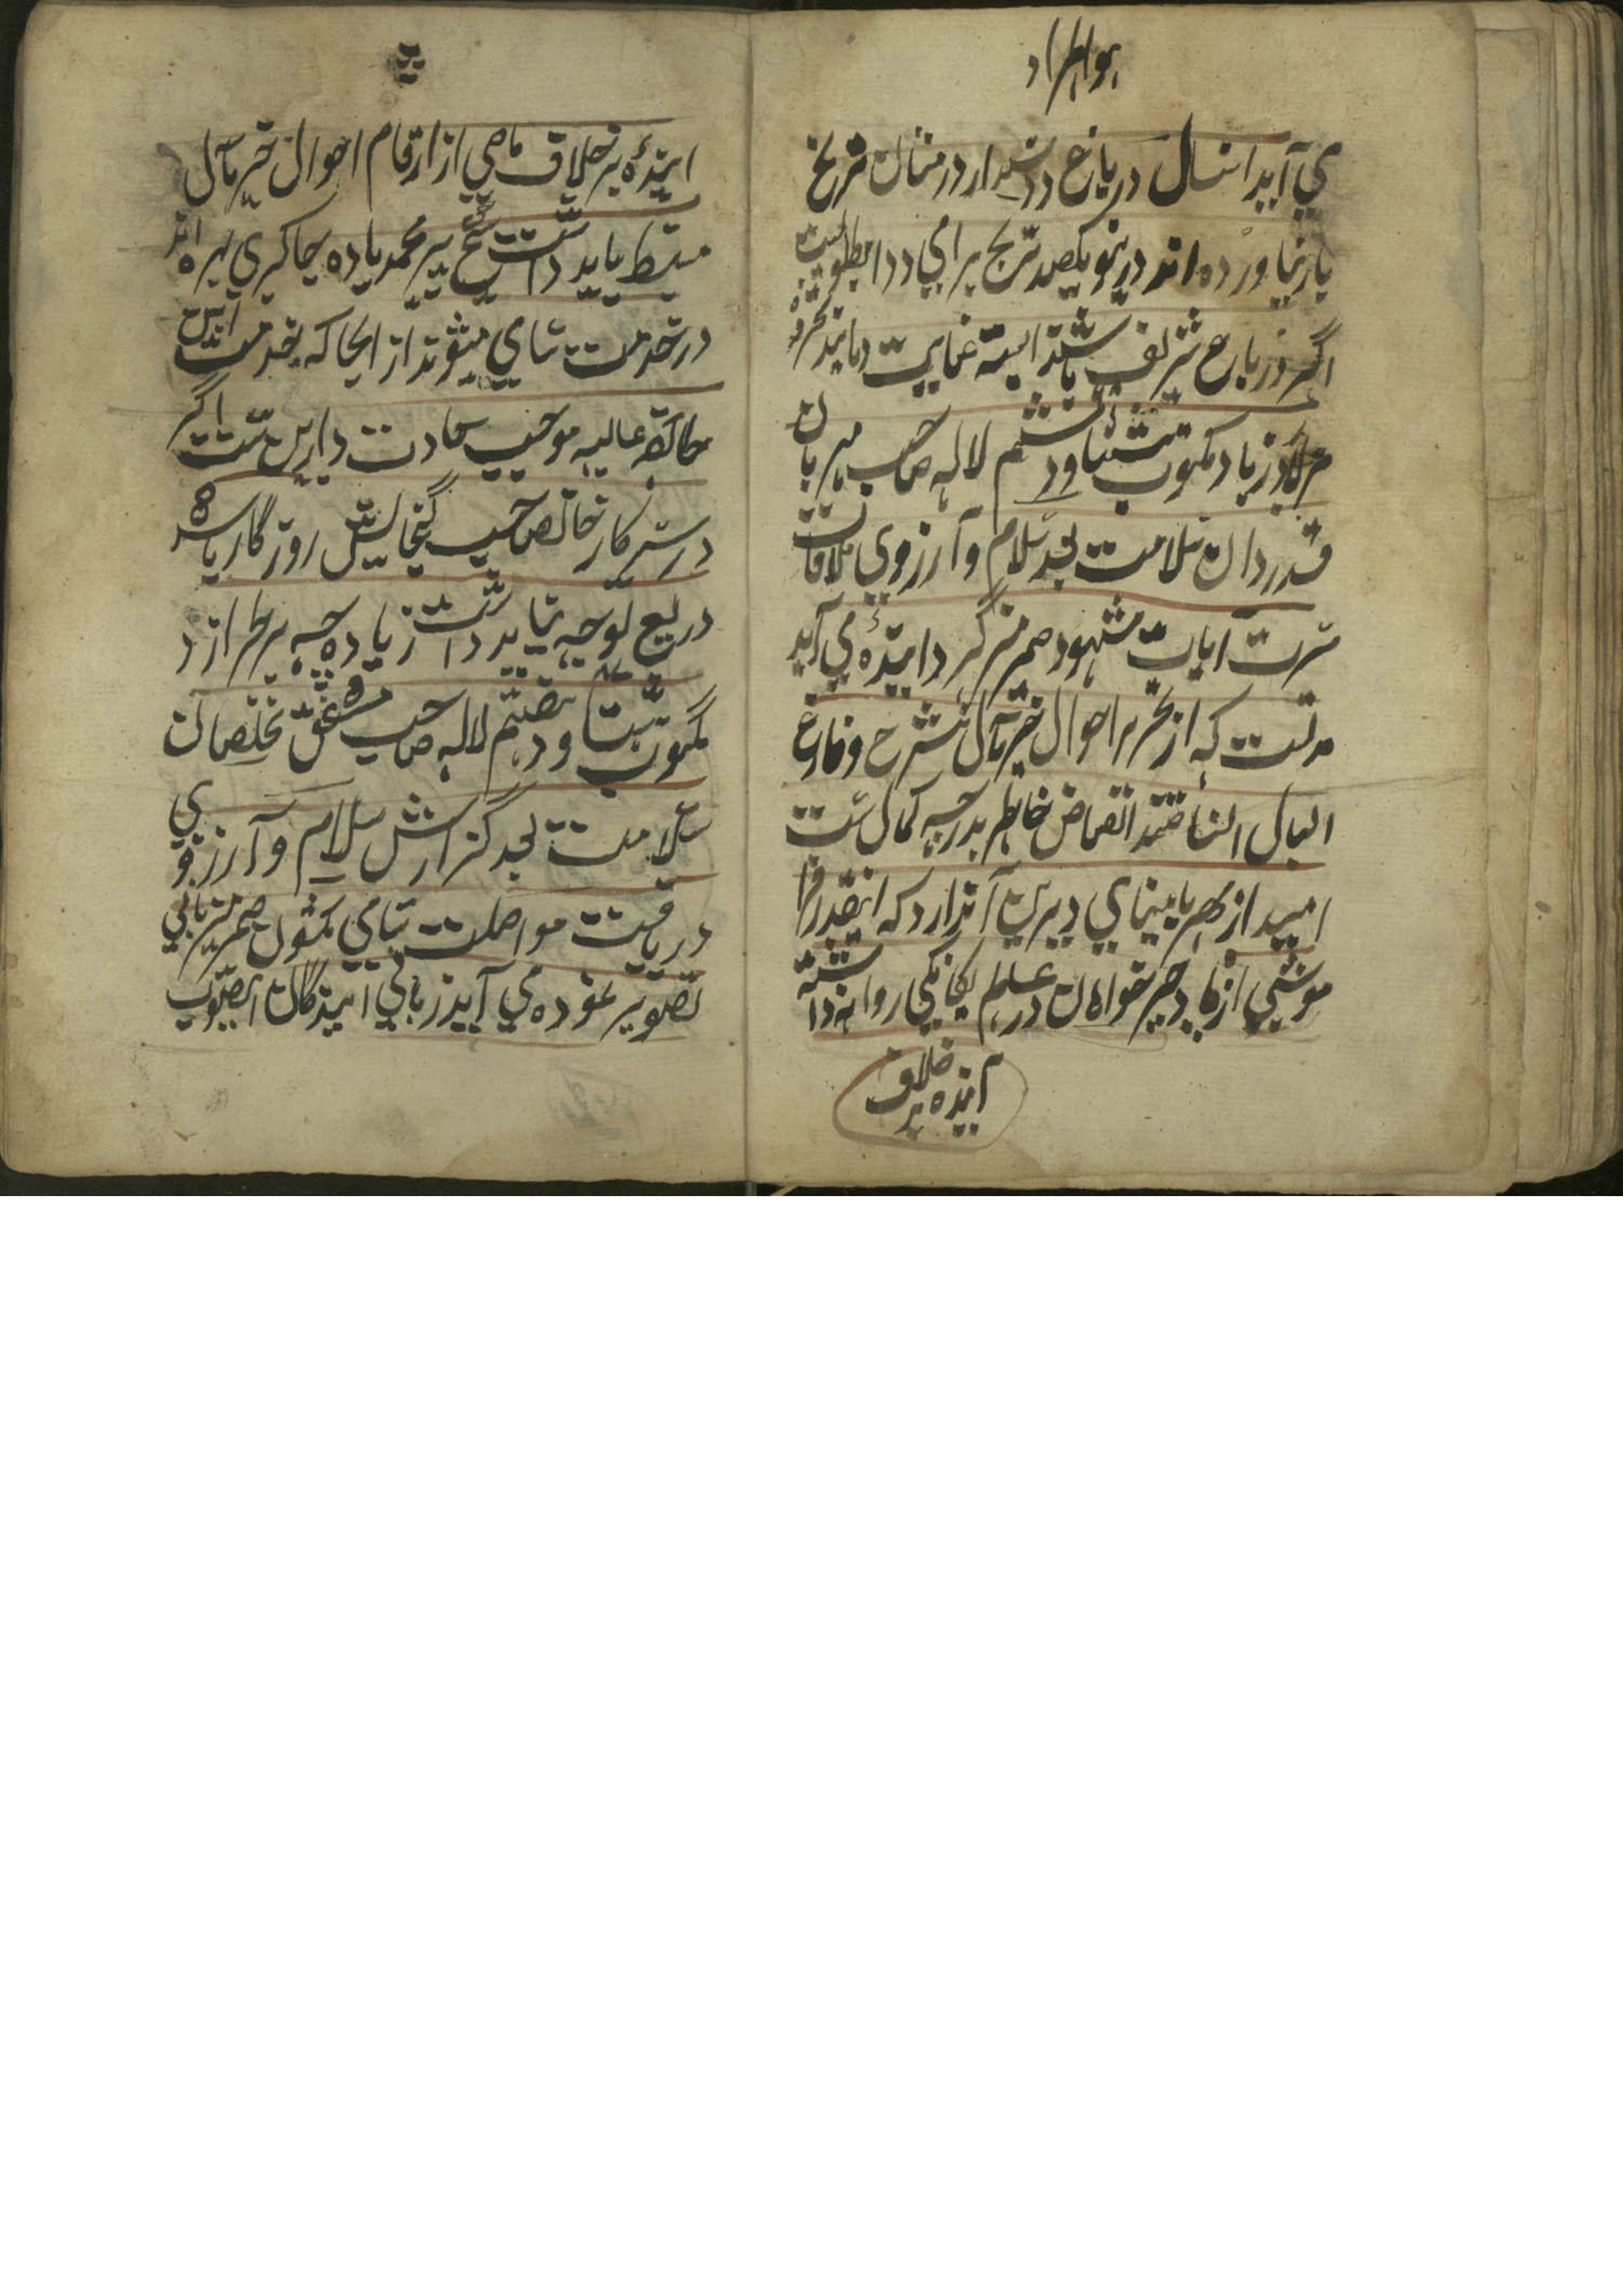 می آید امسال در باغ دوستدار درختان ترنج
بار نیاورده اند درینو یکصد ترنج برای دوا مطلوبست
اگر در باغ شریف باشد البته عنایت
زیاد مکتوب هشتاد و ششم لاله صاحب مهربان
قدردان سلامت بعد سلام و آرزوی ملاقات
مسرت آیات مشهود ضمیر گردانیده می آید
مدتست که از تحریر احوال خیر مآل منشرح و فارغ
البال نساختند انقباض خاطر بدرجه کمال ست
امید از مهر با سینای دیرین آندارد که اینقدر فرا
موشی از یاد خیر خواهان در عالم یگانگی روا نداشته
آینده بر خلاف
آینده بر خلاف ماضی از ارقام احوال خیر مآل
منبسط باید داشت شیخ پیر محمد یاده جاگیری بهره اند
در خدمت سامی میشوند از انجا که خدمت
عالیه موجب سعادت دارین ست اگر
در سرکار خانصاحب گنجایش روزگار باشد
دریغ توجه نباید داشت زیاده چه برطرازد
مکتوب هشتاد و هفتم لاله صاحب مشفق مخلصان
سلامت بعد گزارش سلام و آرزوی
دریافت مواصلت سامی مکشوف ضمیر
تصویر نموده می آید زبانی آیندگان آنصوب